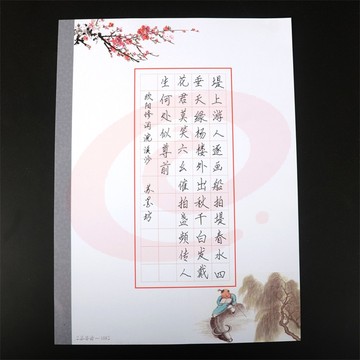 堤上游人逐画船拍堤春水四
垂天绿杨楼外出秋千白发戴
花君莫笑六幺催拍盏频传人
生何处似尊前
欧阳修词浣溪沙